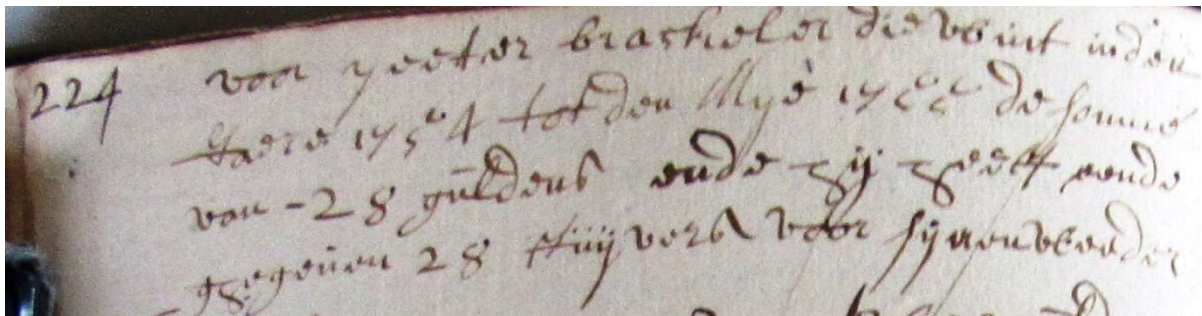 224 voor peeter brackeler die wint inden
Jaere 1754 tot den Meye 1755 de somme
van - 28 guldens ende hy heeft ende
gegeven 28 stuijvers voor syn